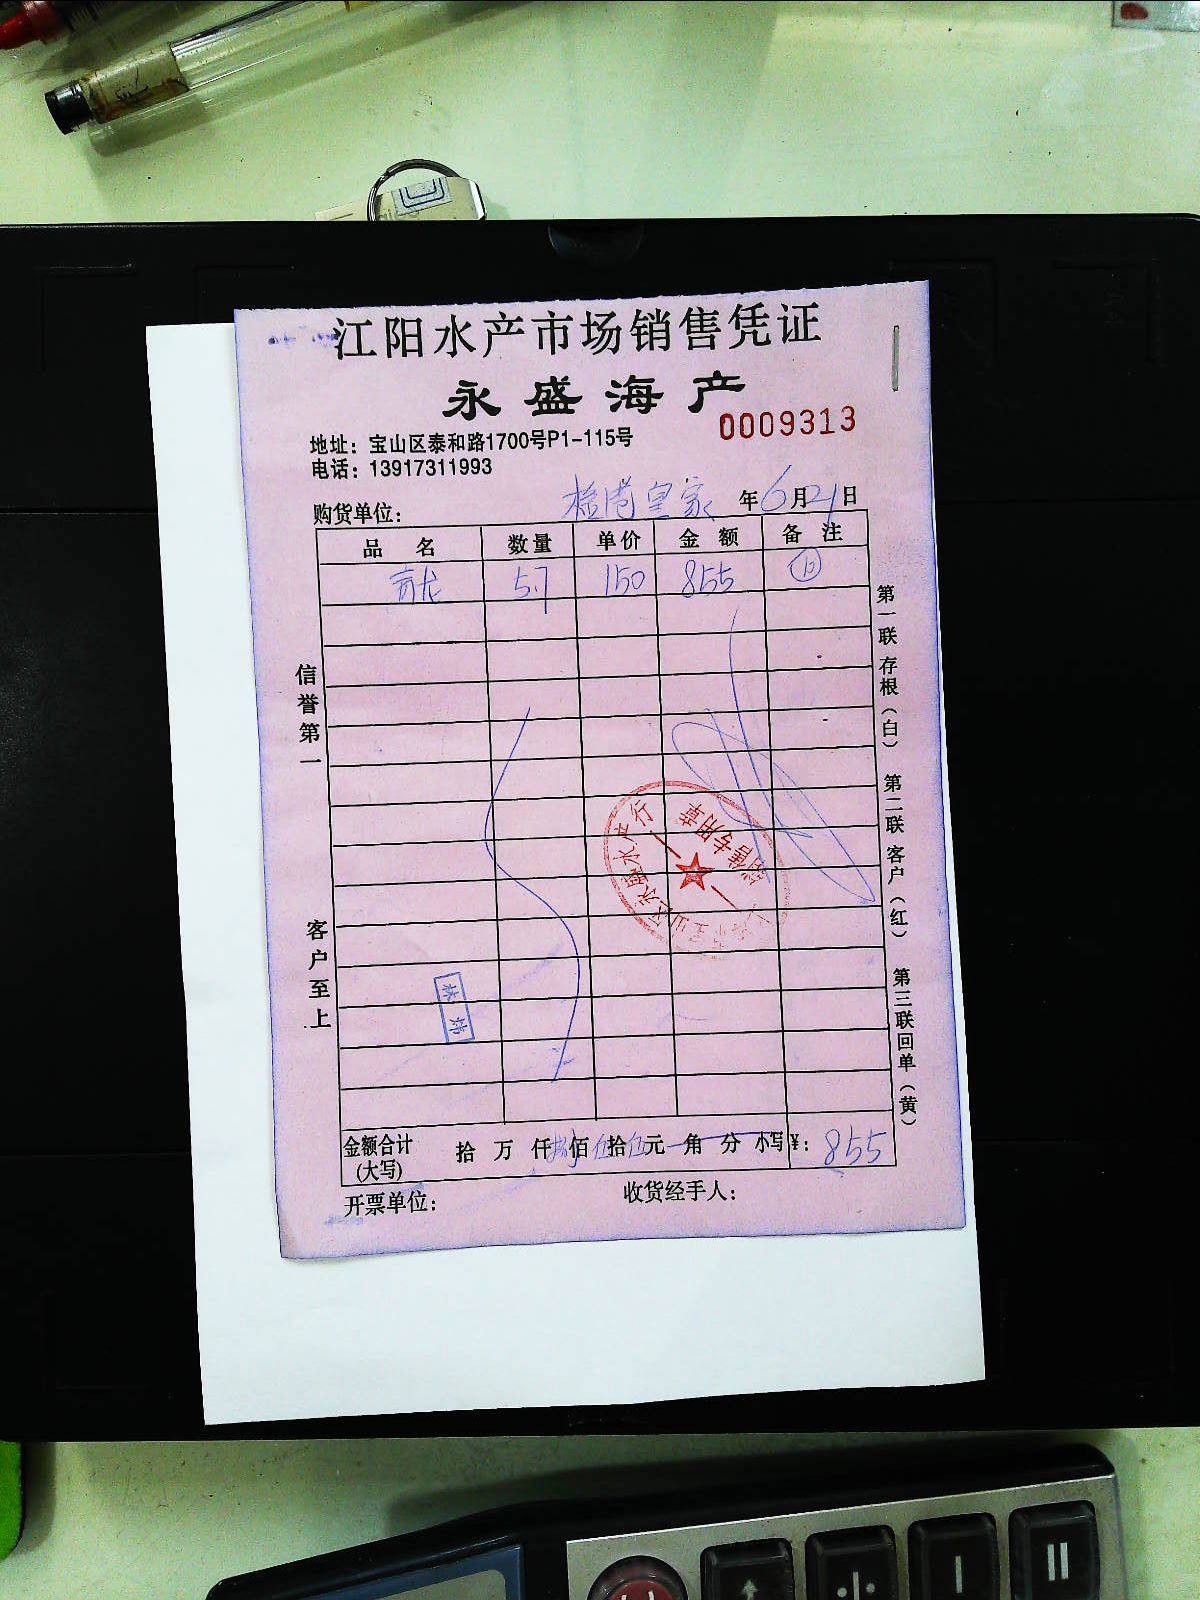 江阳水产市场销售凭证
永盛海产
0009313
地址：宝山区泰和路1700号P1-115号
电话：13917311993
购货单位： 皇家 年6月21日
品名 数量 单价 金额 备注
青龙 5.7 150 855 12
信誉第一
客户至上
第一联 存根（白） 第二联 客户（红） 第三联 回单（黄）
宝山区永盛水产行
销售专用章
金额合计（大写） 拾 万 仟 捌佰 伍拾 伍元 角 分 小写¥：855
开票单位： 收货经手人：